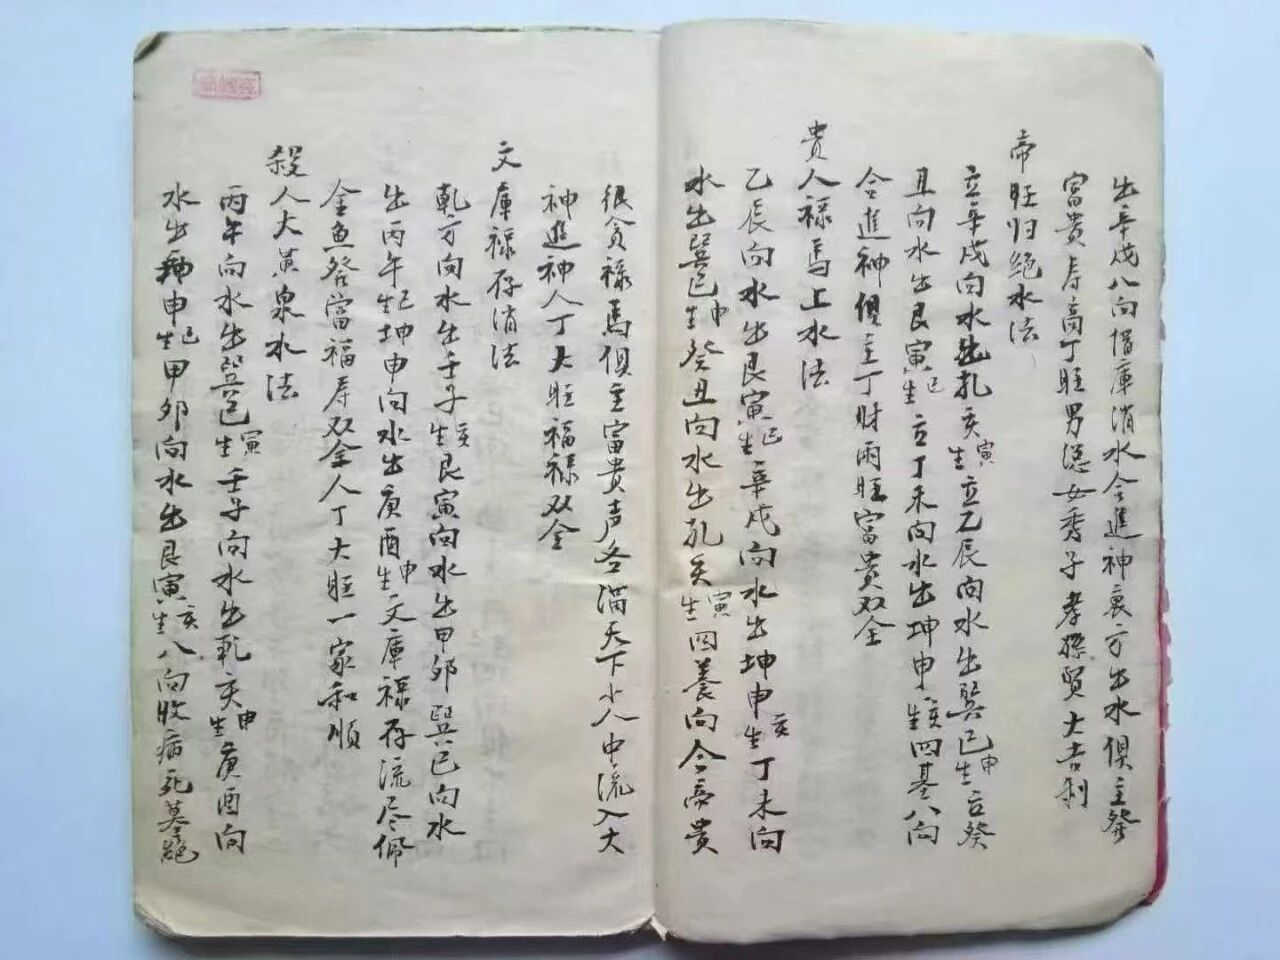 出辛戌八向借庫消水合進神衰方出水俱主發
富貴寿高丁旺男聪女秀子孝孫賢大吉利
帝旺归絕水法
立辛戌向水出乾亥生寅立乙辰向水出巽巳生申立癸
丑向水出艮寅生巳立丁未向水出坤申生亥四墓八向
合進神俱主丁財両旺富貴双全
貴人祿馬上水法
乙辰向水出艮寅生巳辛戌向水出坤申生亥丁未向
水出巽巳生申癸丑向水出乾亥生寅四養向合帝貴
很貪祿馬俱主富貴声名滿天下小人中流入大
神進神人丁大旺福祿双全
文庫祿存消法
乾方向水出壬子生亥艮寅向水出甲卯巽巳向水
出丙午生巳坤申向水出庚酉生申文庫祿存流尽佩
金魚發富福寿双全人丁大旺一家和順
殺人大黃泉水法
丙午向水出巽巳生寅壬子向水出乾亥生申庚酉向
水出坤申生巳甲卯向水出艮寅生亥八向收病死墓絕